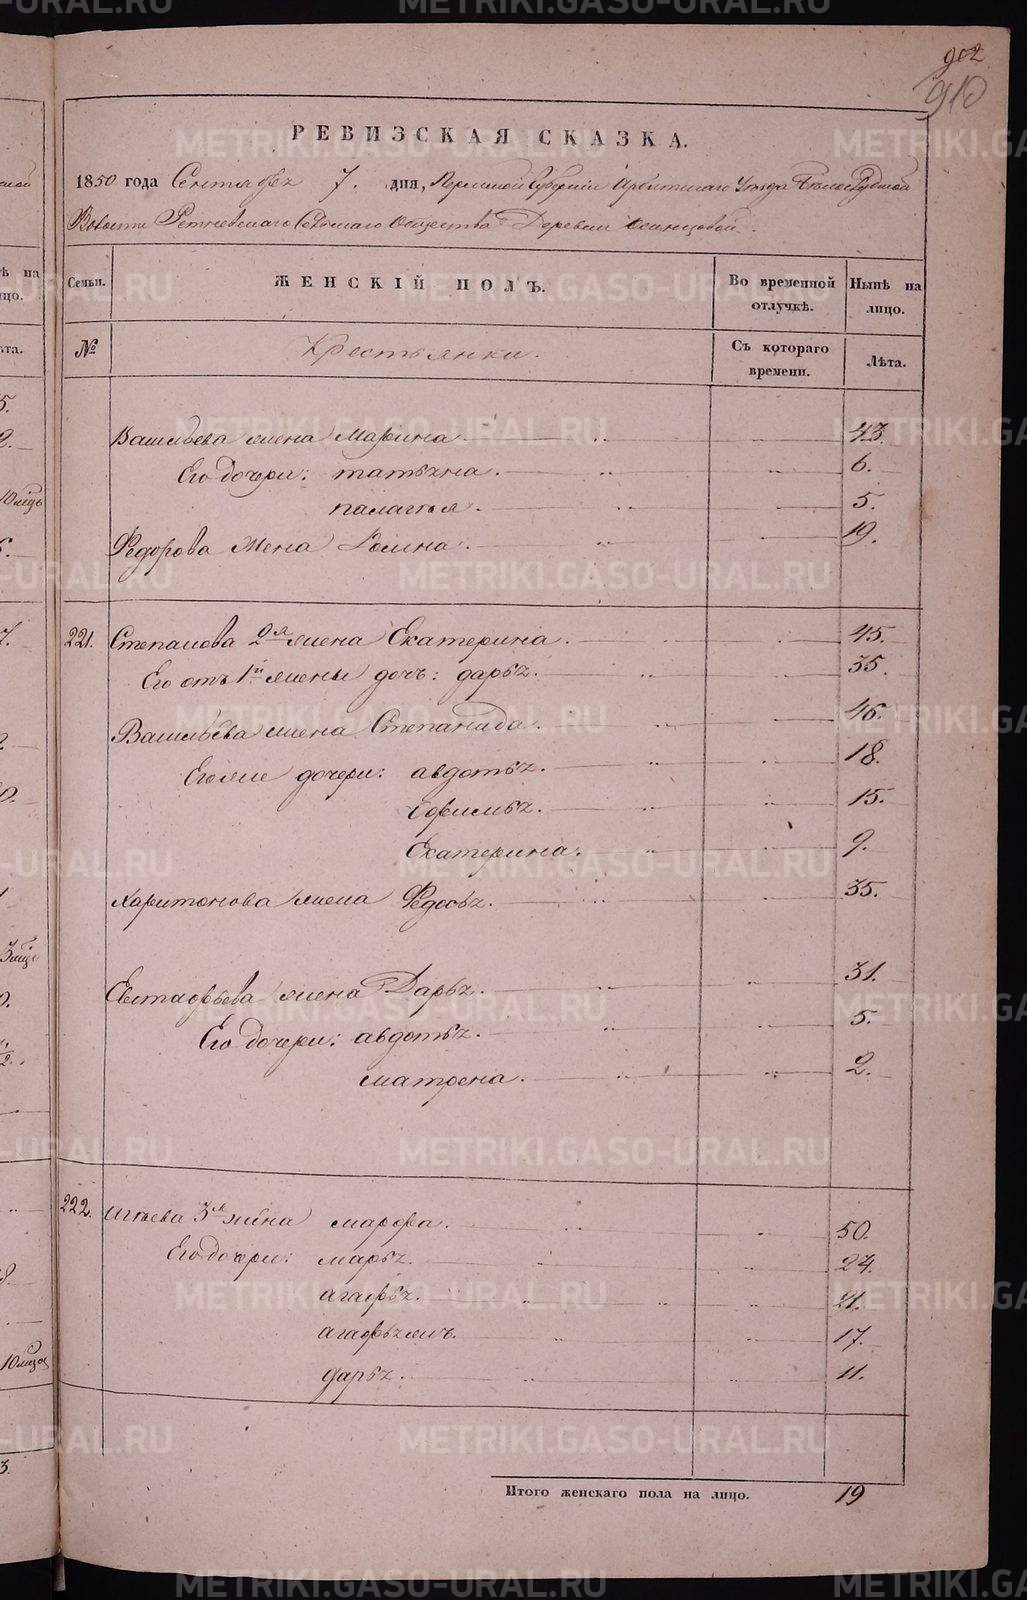 902
910
РЕВИЗСКАЯ СКАЗКА.
1850 года Сентября 7. дня, Пермской Губерніи Ирбитскаго Уѣзда Бѣлослудской
Волости Ретневскаго Сельскаго Общества Деревни Осинцовой.
Семьи. ЖЕНСКІЙ ПОЛЪ. Во временной отлучкѣ. Нынѣ на лицо.
№ Крестьянки. Съ котораго времени. Лѣта.
Васильева жена Марина. 43.
Его дочери: татьяна. 6.
палагѣя. 5.
Федорова Жена 19.
221. Степанова 2я жена Екатерина. 45.
Его отъ 1й жены дочь: дарья. 35.
Васильева жена Степанида. 46.
Его же дочери: авдотья. 18.
Ефимья. 15.
Екатерина. 9.
Харитонова жена Федосья. 35.
Евстафьева жена Дарья. 31.
Его дочери: авдотья. 5.
матрена. 2.
222. 3я жена марфа. 50.
Его дочери: марья. 24.
агафья. 21.
17.
дарья. 11.
Итого женскаго пола на лицо. 19
METRIKI.GASO-URAL.RU